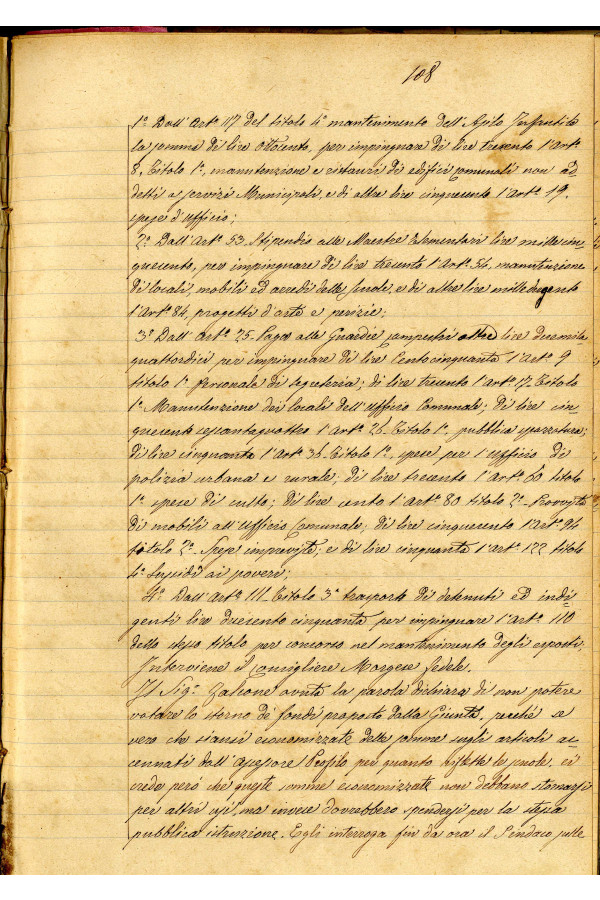 108
1º Dall'Artº 117 del titolo 4º mantenimento dell'Asilo Infantile
la somma di lire ottocento, per impinguare di lire trecento l'artº
8, Titolo 1º, manutenzione e ristauri di edifici comunali non ad=
detti a servizi Municipali, e di altre lire cinquecento l'Artº 19.
spese d'ufficio;
2º Dall'Artº 53. Stipendio alle Maestre elementari lire mille cin=
quecento, per impinguare di lire trecento l'Artº 54, manutenzione
di locali, mobili ed arredi delle scuole, e di altre lire milleduecento
l'Artº 84, progetti d'arte e perizie;
3º Dall'artº 25. Paga alle Guardie campestri oltre lire duemila
quattordici per impinguare di lire Centocinquanta l'artº 9
titolo 1º Personale di segreteria; di lire trecento l'artº 17. Titolo
1º Manutenzione dei locali dell'ufficio Comunale; di lire cin=
quecento sessantaquattro l'Artº 26. Titolo 1º pubblica spazzatura;
di lire cinquanta l'Artº 36. Titolo 1º, spese per l'ufficio di
polizia urbana e rurale; di lire trecento l'Artº 60 titolo
1º spese di culto; di lire cento l'Artº 80 titolo 2º Provvista
di mobili all'ufficio Comunale; di lire cinquecento l'Artº 94
titolo 2º Spese impreviste; e di lire cinquanta l'Artº 122 titolo
4º Sussidi ai poveri;
4º Dall'Artº 111. Titolo 3º trasporto di detenuti ed indi=
genti lire duecento cinquanta per impinguare l'Artº 110
dello stesso titolo per concorso nel mantenimento degli esposti.
Interviene il consigliere Morgese Fedele.
Il Sigº Zaccone avuta la parola dichiara di non potere
votare lo storno di fondi proposto dalla Giunta, perchè se
vero che siansi economizzate delle somme sugli articoli ac=
cennati dall'assessore per quanto riflette le scuole, ei
crede però che queste somme economizzate non debbano stornarsi
per altri usi, ma invece dovrebbero spendersi per la stessa
pubblica istruzione. Egli interroga fin da ora il Sindaco sulle